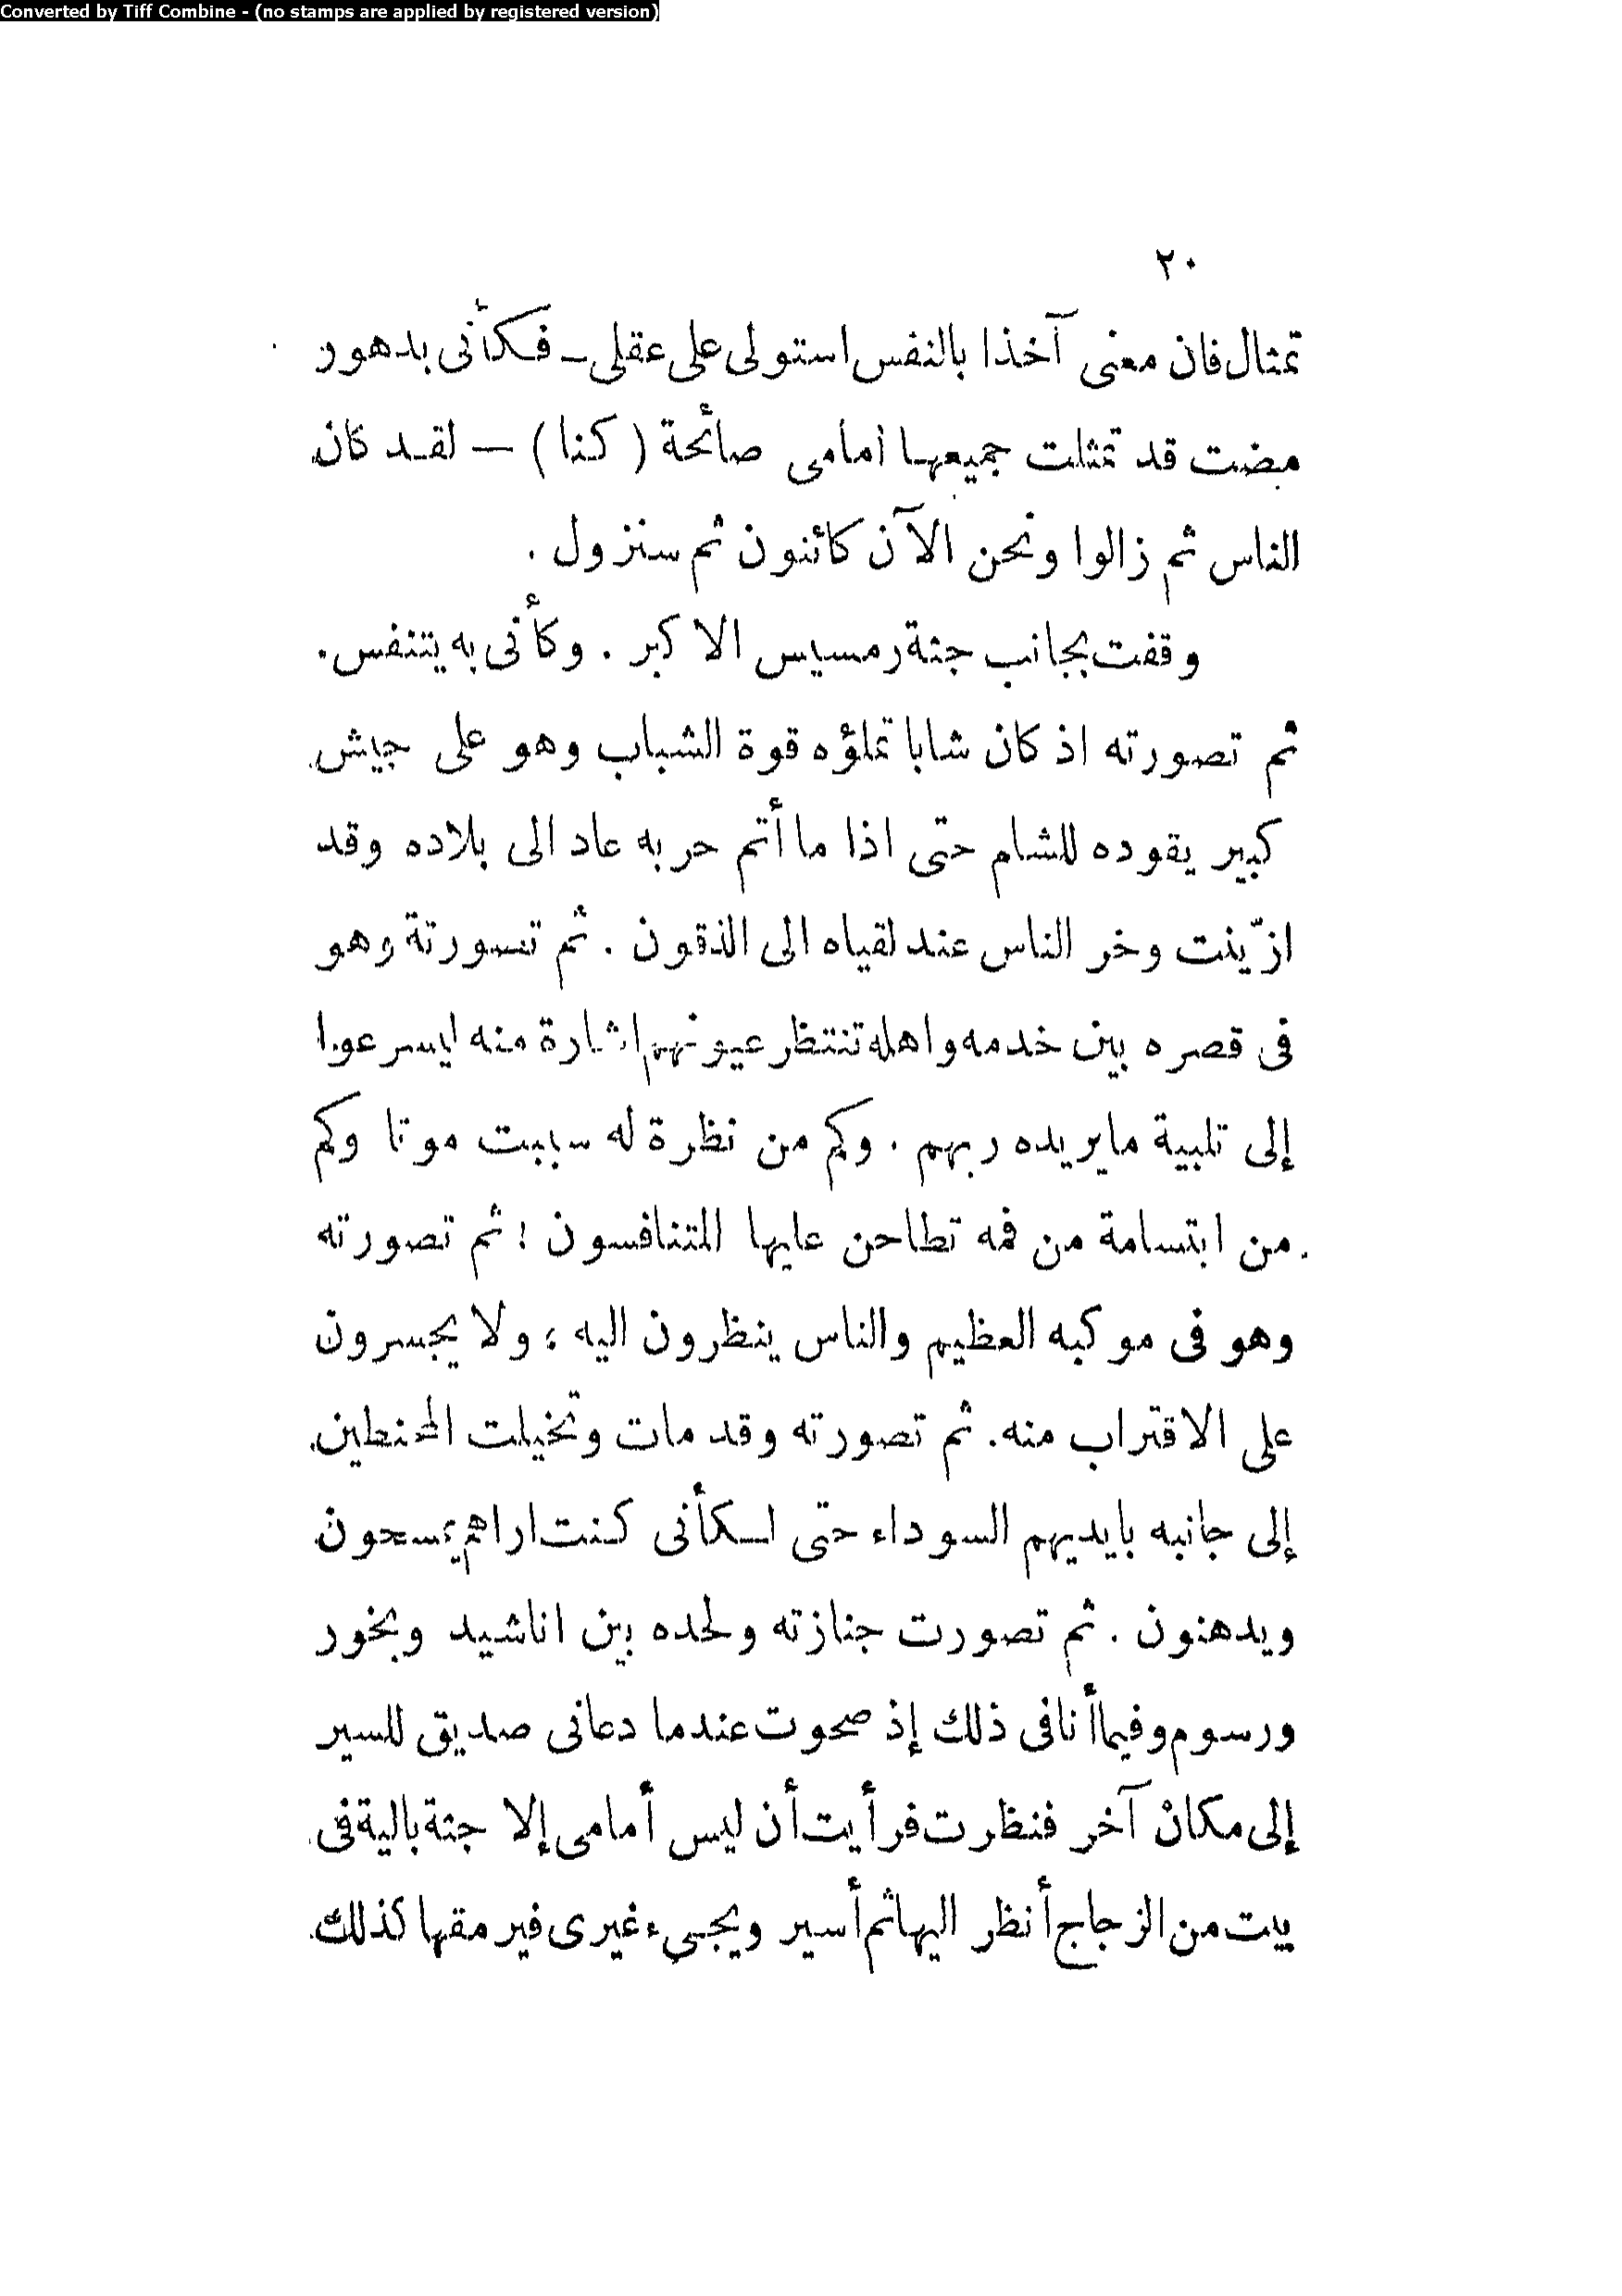 Converted by Tiff Combine - (no stamps are applied by registered version)
٢٠
تمثال فان معنى آخذا بالنفس استولى على عقلى ــ فكأنى بدهور
مضت قد تمثلت جميعها امامى صائحة (كنا) — لقد كان
الناس ثم زالوا ونحن الآن كائنون ثم سنزول .
وقفت بجانب جثة رمسيس الاكبر . وكأنى به يتنفس .
ثم تصورته اذ كان شابا تملؤه قوة الشباب وهو على جيش
كبير يقوده للشام حتى اذا ما أتم حربه عاد الى بلاده وقد
ازّينت وخر الناس عند لقياه الى الذقون . ثم تصورتة وهو
فى قصره بين خدمه واهله تنتظر عيونهم اشارة منه ليسرعوا
إلى تلبية مايريده ربهم . وكم من نظرة له سببت موتا وكم
من ابتسامة من فمه تطاحن عليها المتنافسون ! ثم تصورته
وهو فى موكبه العظيم والناس ينظرون اليه ؛ ولا يجسرون
على الاقتراب منه . ثم تصورته وقد مات وتخيلت المحنطين
إلى جانبه بايديهم السوداء حتى لكأنى كنت اراهم يمسحون
ويدهنون . ثم تصورت جنازته ولحده بين اناشيد وبخور
ورسوم وفيما أنا فى ذلك إذ صحوت عندما دعانى صديق للسير
إلى مكان آخر فنظرت فرأيت أن ليس أمامى إلا جثة بالية فى
بيت من الزجاج أنظر اليها ثم أسير ويجىء غيرى فيرمقها كذلك